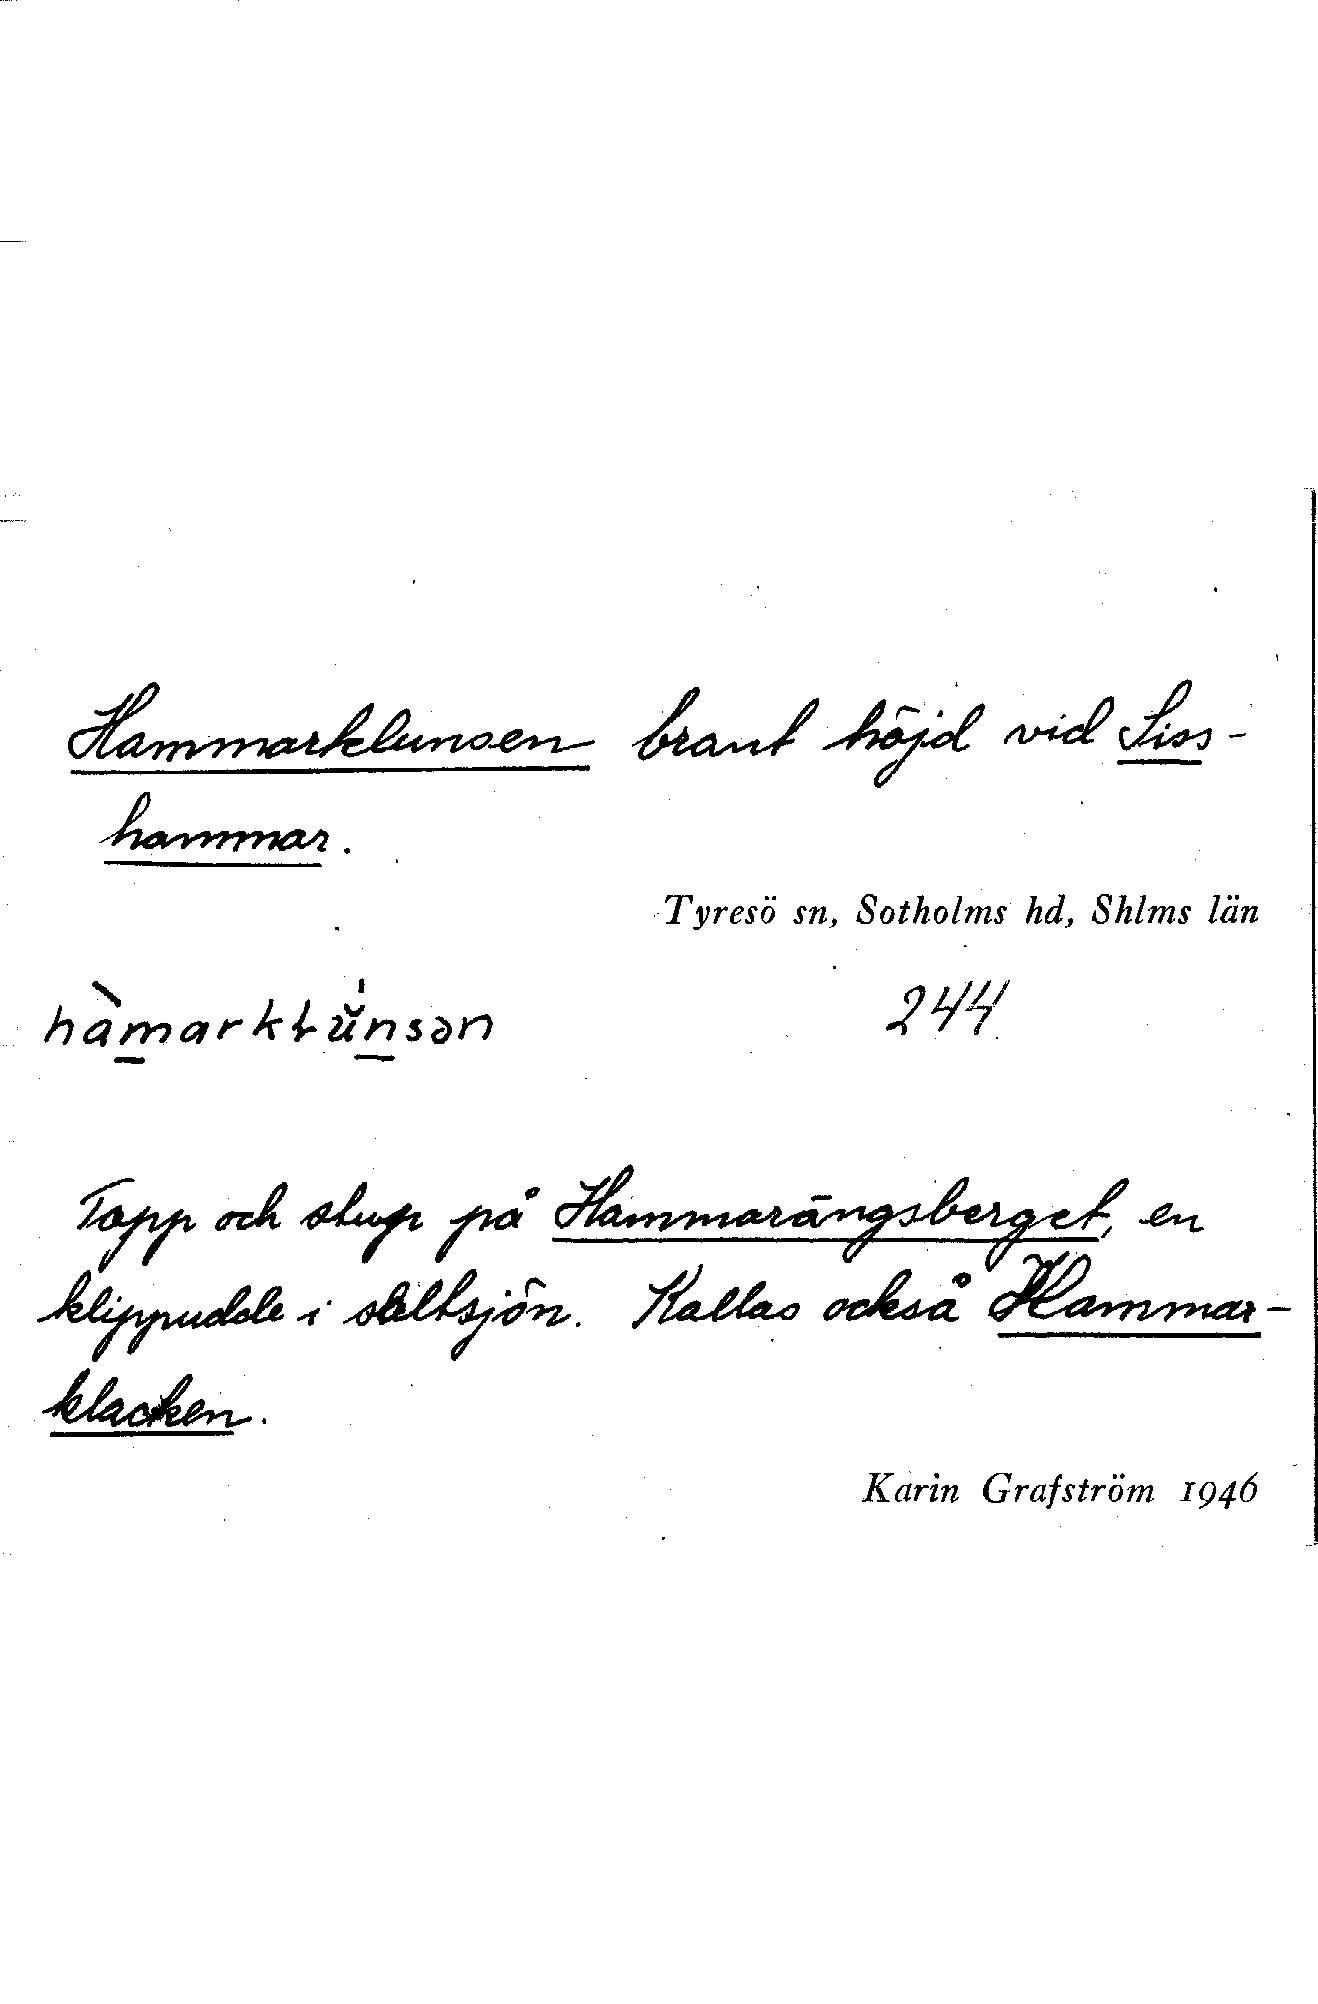 Hammarklunsen brant höjd vid Siss-
hammar.
Tyresö sn, Sotholms hd, Shlms län
hàmarkłŭ'nsən 244
Topp och stup på Hammarängsberget, en
klippudde i saltsjön. Kallas också Hammar-
klacken.
Karin Grafström 1946